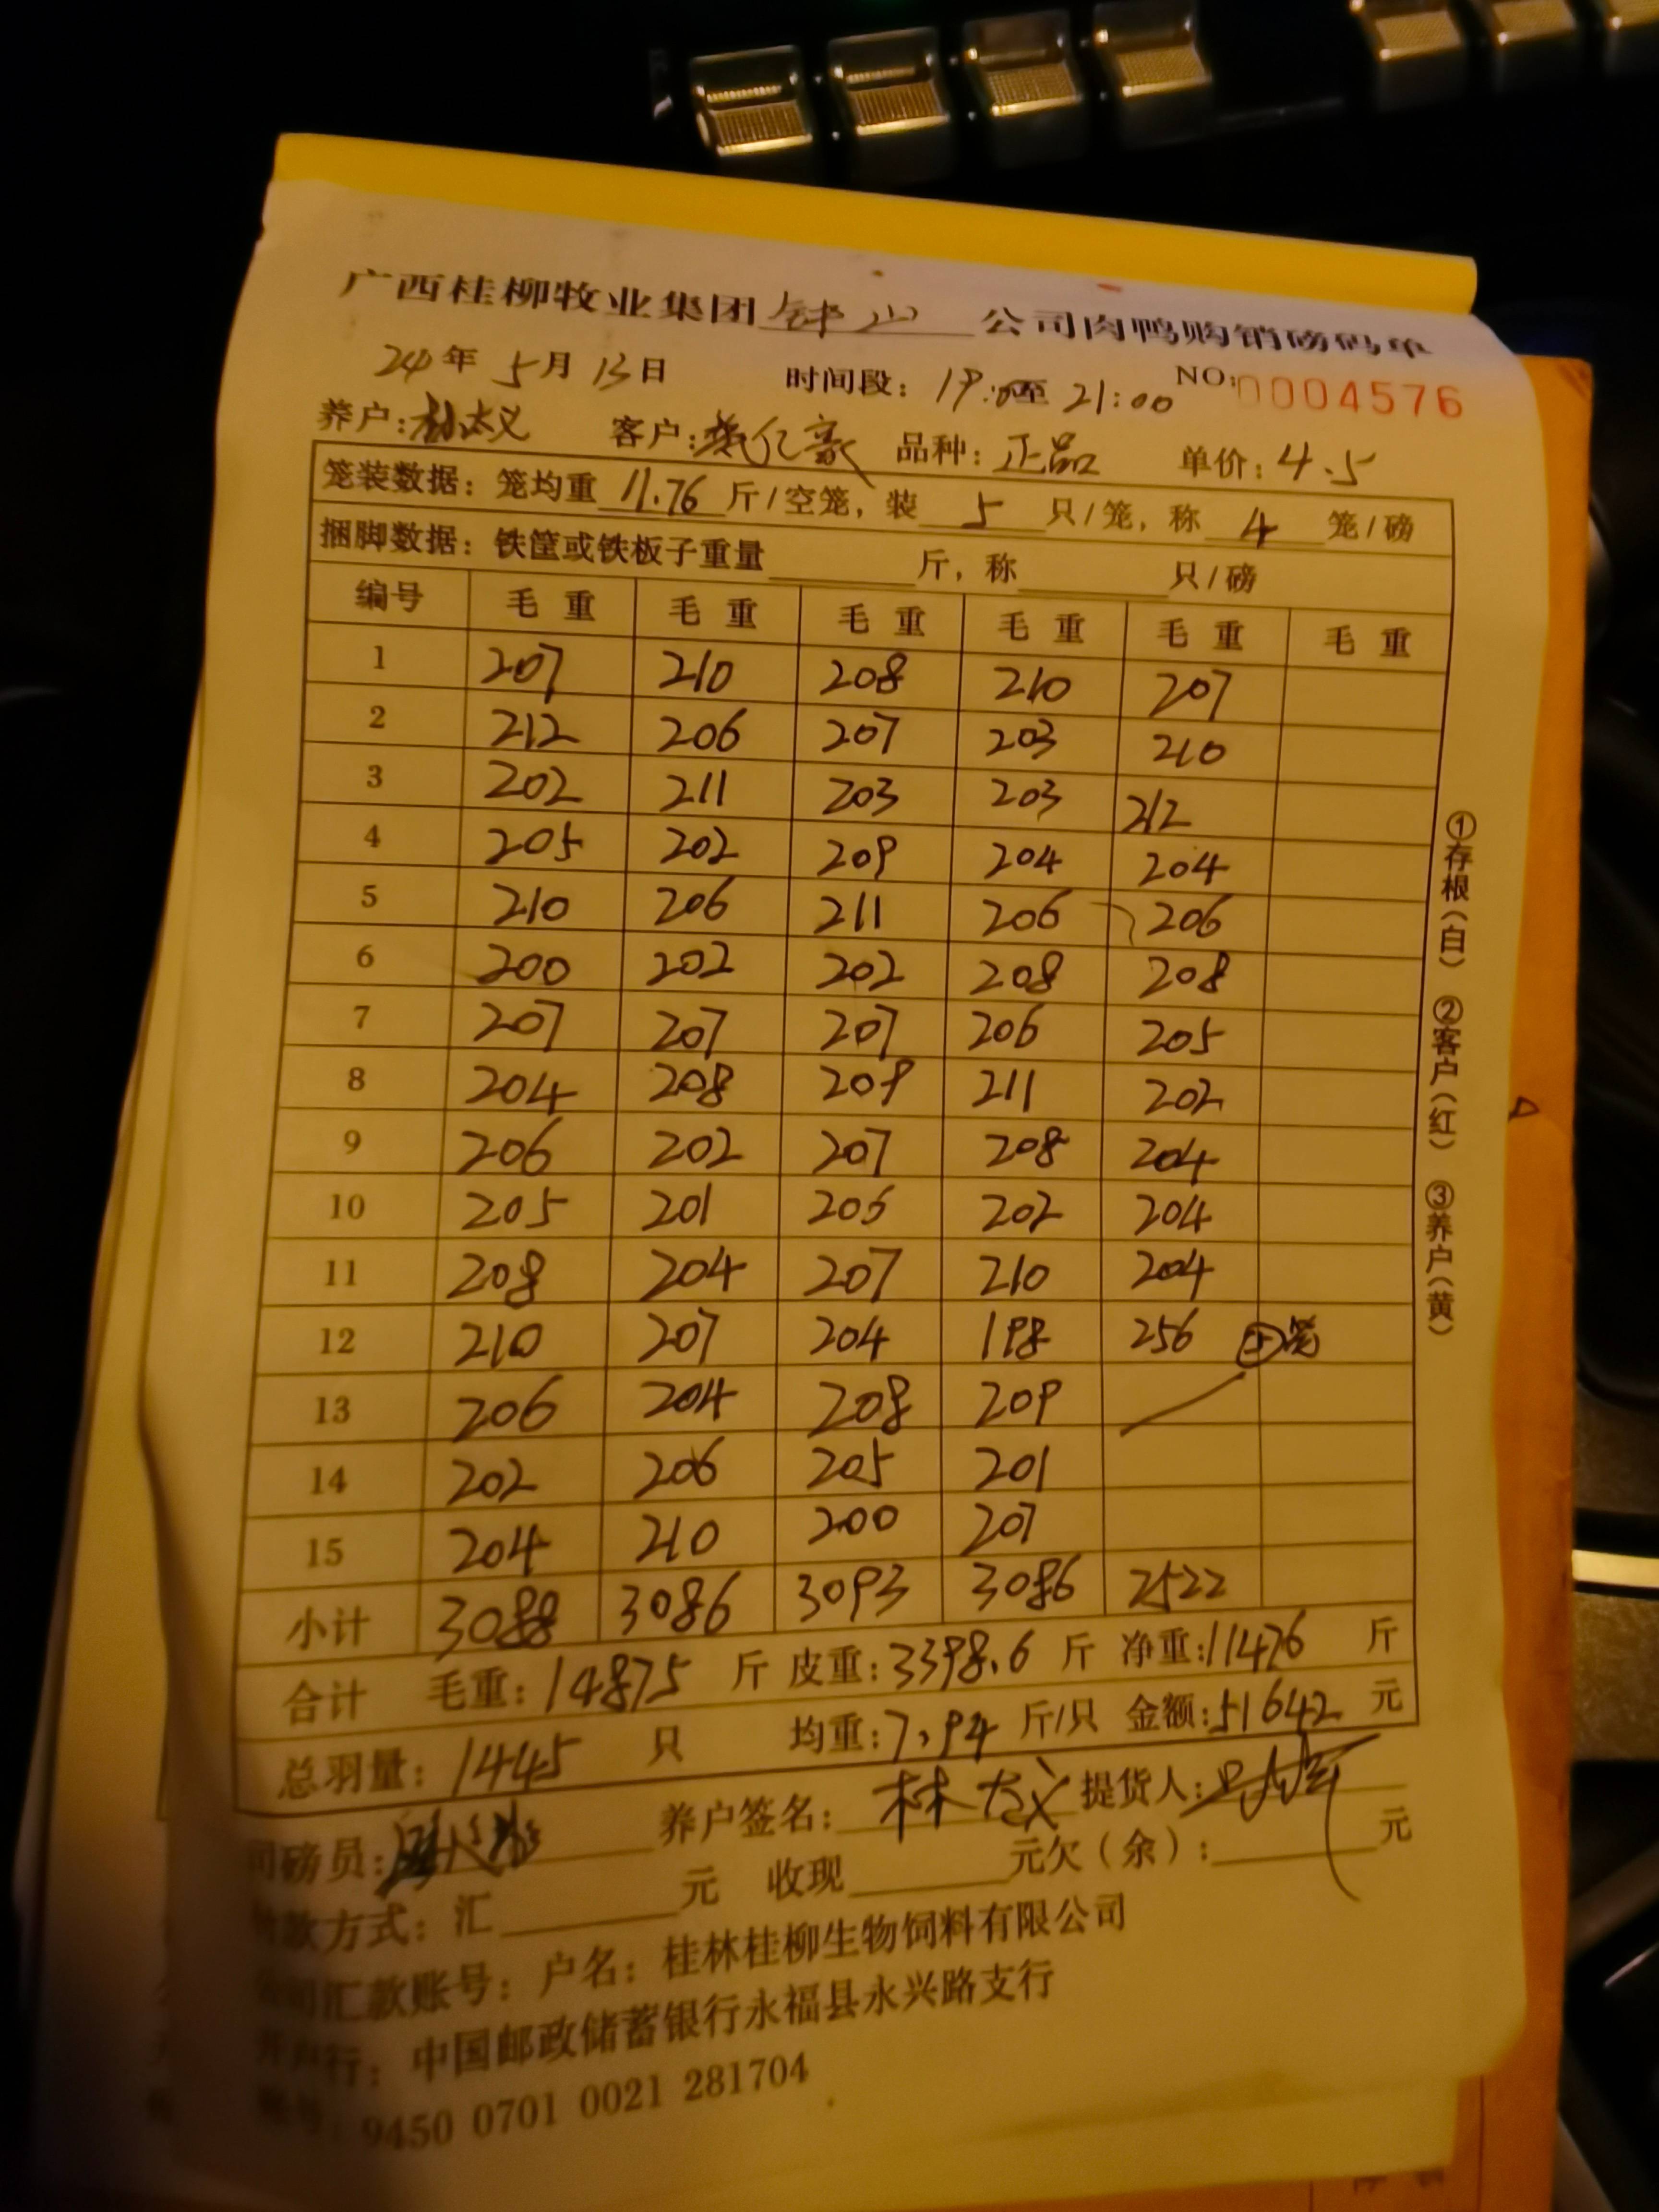 广西桂柳牧业集团 钟山 公司肉鸭购销磅码单
24年 5月 13日 时间段: 19:00至 21:00 NO:0004576
养户: 林太义 客户: 亿豪 品种: 正品 单价: 4.5
笼装数据: 笼均重 11.76 斤/空笼, 装 5 只/笼, 称 4 笼/磅
捆脚数据: 铁筐或铁板子重量 斤, 称 只/磅
编号 毛重 毛重 毛重 毛重 毛重 毛重
1 207 210 208 210 207
2 212 206 207 203 210
3 202 211 203 203 212
4 205 202 209 204 204
5 210 206 211 206 206
6 200 202 202 208 208
7 207 207 207 206 205
8 204 208 209 211 202
9 206 202 207 208 204
10 205 201 206 202 204
11 208 204 207 210 204
12 210 207 204 198 256 ⑤笼
13 206 204 208 209
14 202 206 205 201
15 204 210 200 207
小计 3088 3086 3093 3086 2522
合计 毛重: 14875 斤 皮重: 3398.6 斤 净重: 11476 斤
总羽量: 1445 只 均重: 7.94 斤/只 金额: 51642 元
司磅员: 养户签名: 林太义 提货人:
付款方式: 汇 元 收现 元欠(余): 元
汇款账号: 户名: 桂林桂柳生物饲料有限公司
开户行: 中国邮政储蓄银行永福县永兴路支行
账号: 9450 0701 0021 281704
①存根(白) ②客户(红) ③养户(黄)